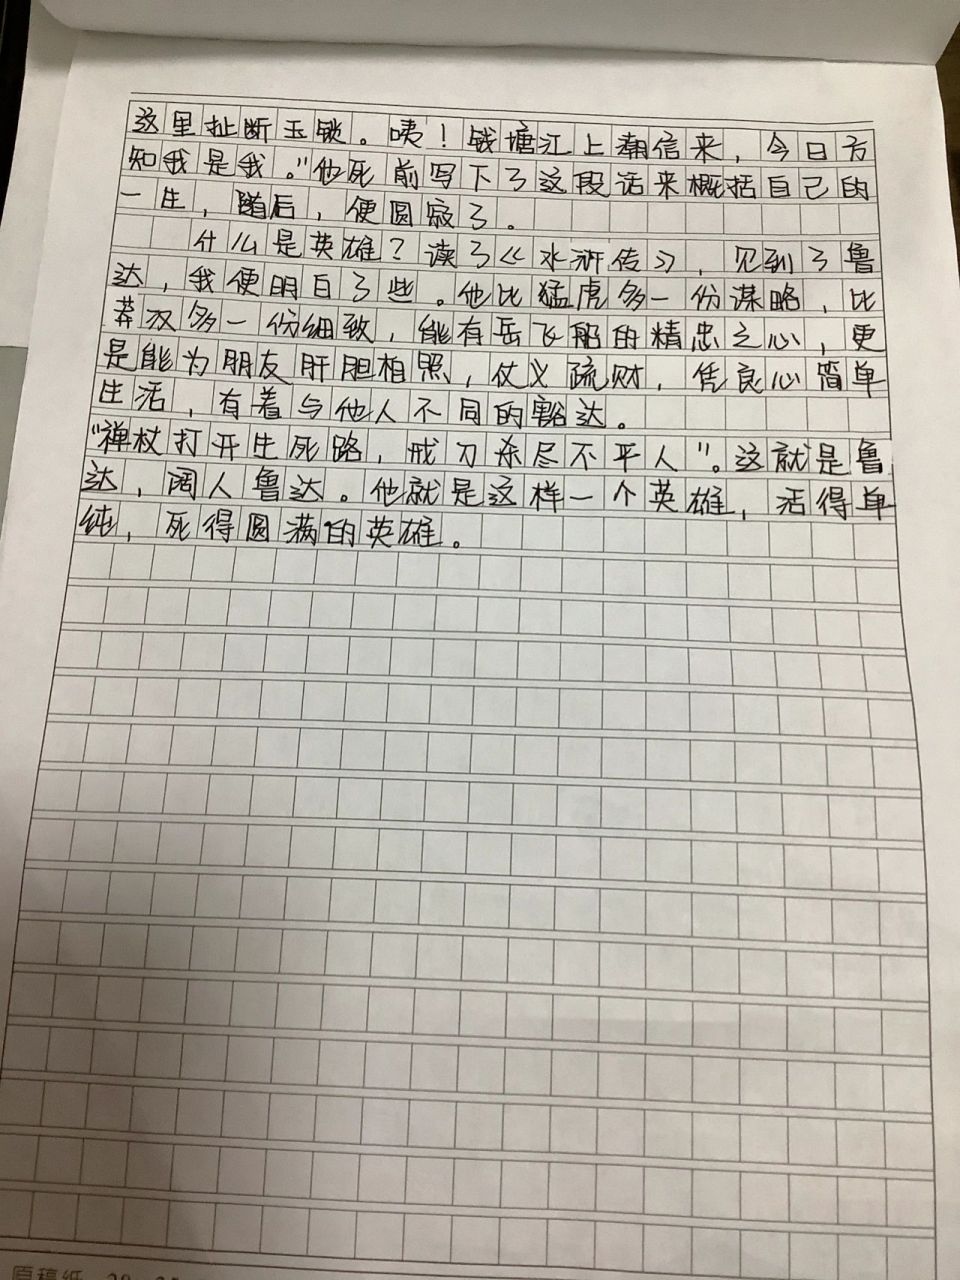 这里扯断玉锁。咦！钱塘江上潮信来，今日方
知我是我。”他死前写下了这段话来概括自己的
一生，随后，便圆寂了。
什么是英雄？读了《水浒传》，见到了鲁
达，我便明白了些。他比猛虎多一份谋略，比
莽汉多一份细致，能有岳飞般的精忠之心，更
是能为朋友肝胆相照，仗义疏财，凭良心简单
生活，有着与他人不同的豁达。
“禅杖打开生死路，戒刀杀尽不平人”。这就是鲁
达，阔人鲁达。他就是这样一个英雄，活得单
纯，死得圆满的英雄。
原稿纸